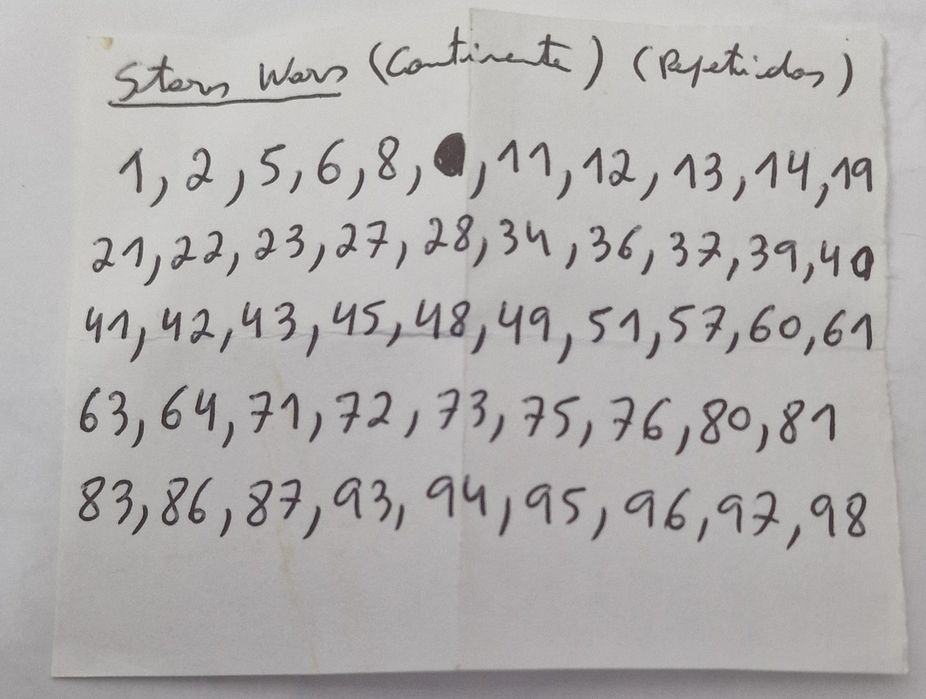 Stars Wars (Continente) (Repetidos)
1, 2, 5, 6, 8, , 11, 12, 13, 14, 19
21, 22, 23, 27, 28, 34, 36, 37, 39, 40
41, 42, 43, 45, 48, 49, 51, 57, 60, 61
63, 64, 71, 72, 73, 75, 76, 80, 81
83, 86, 87, 93, 94, 95, 96, 97, 98